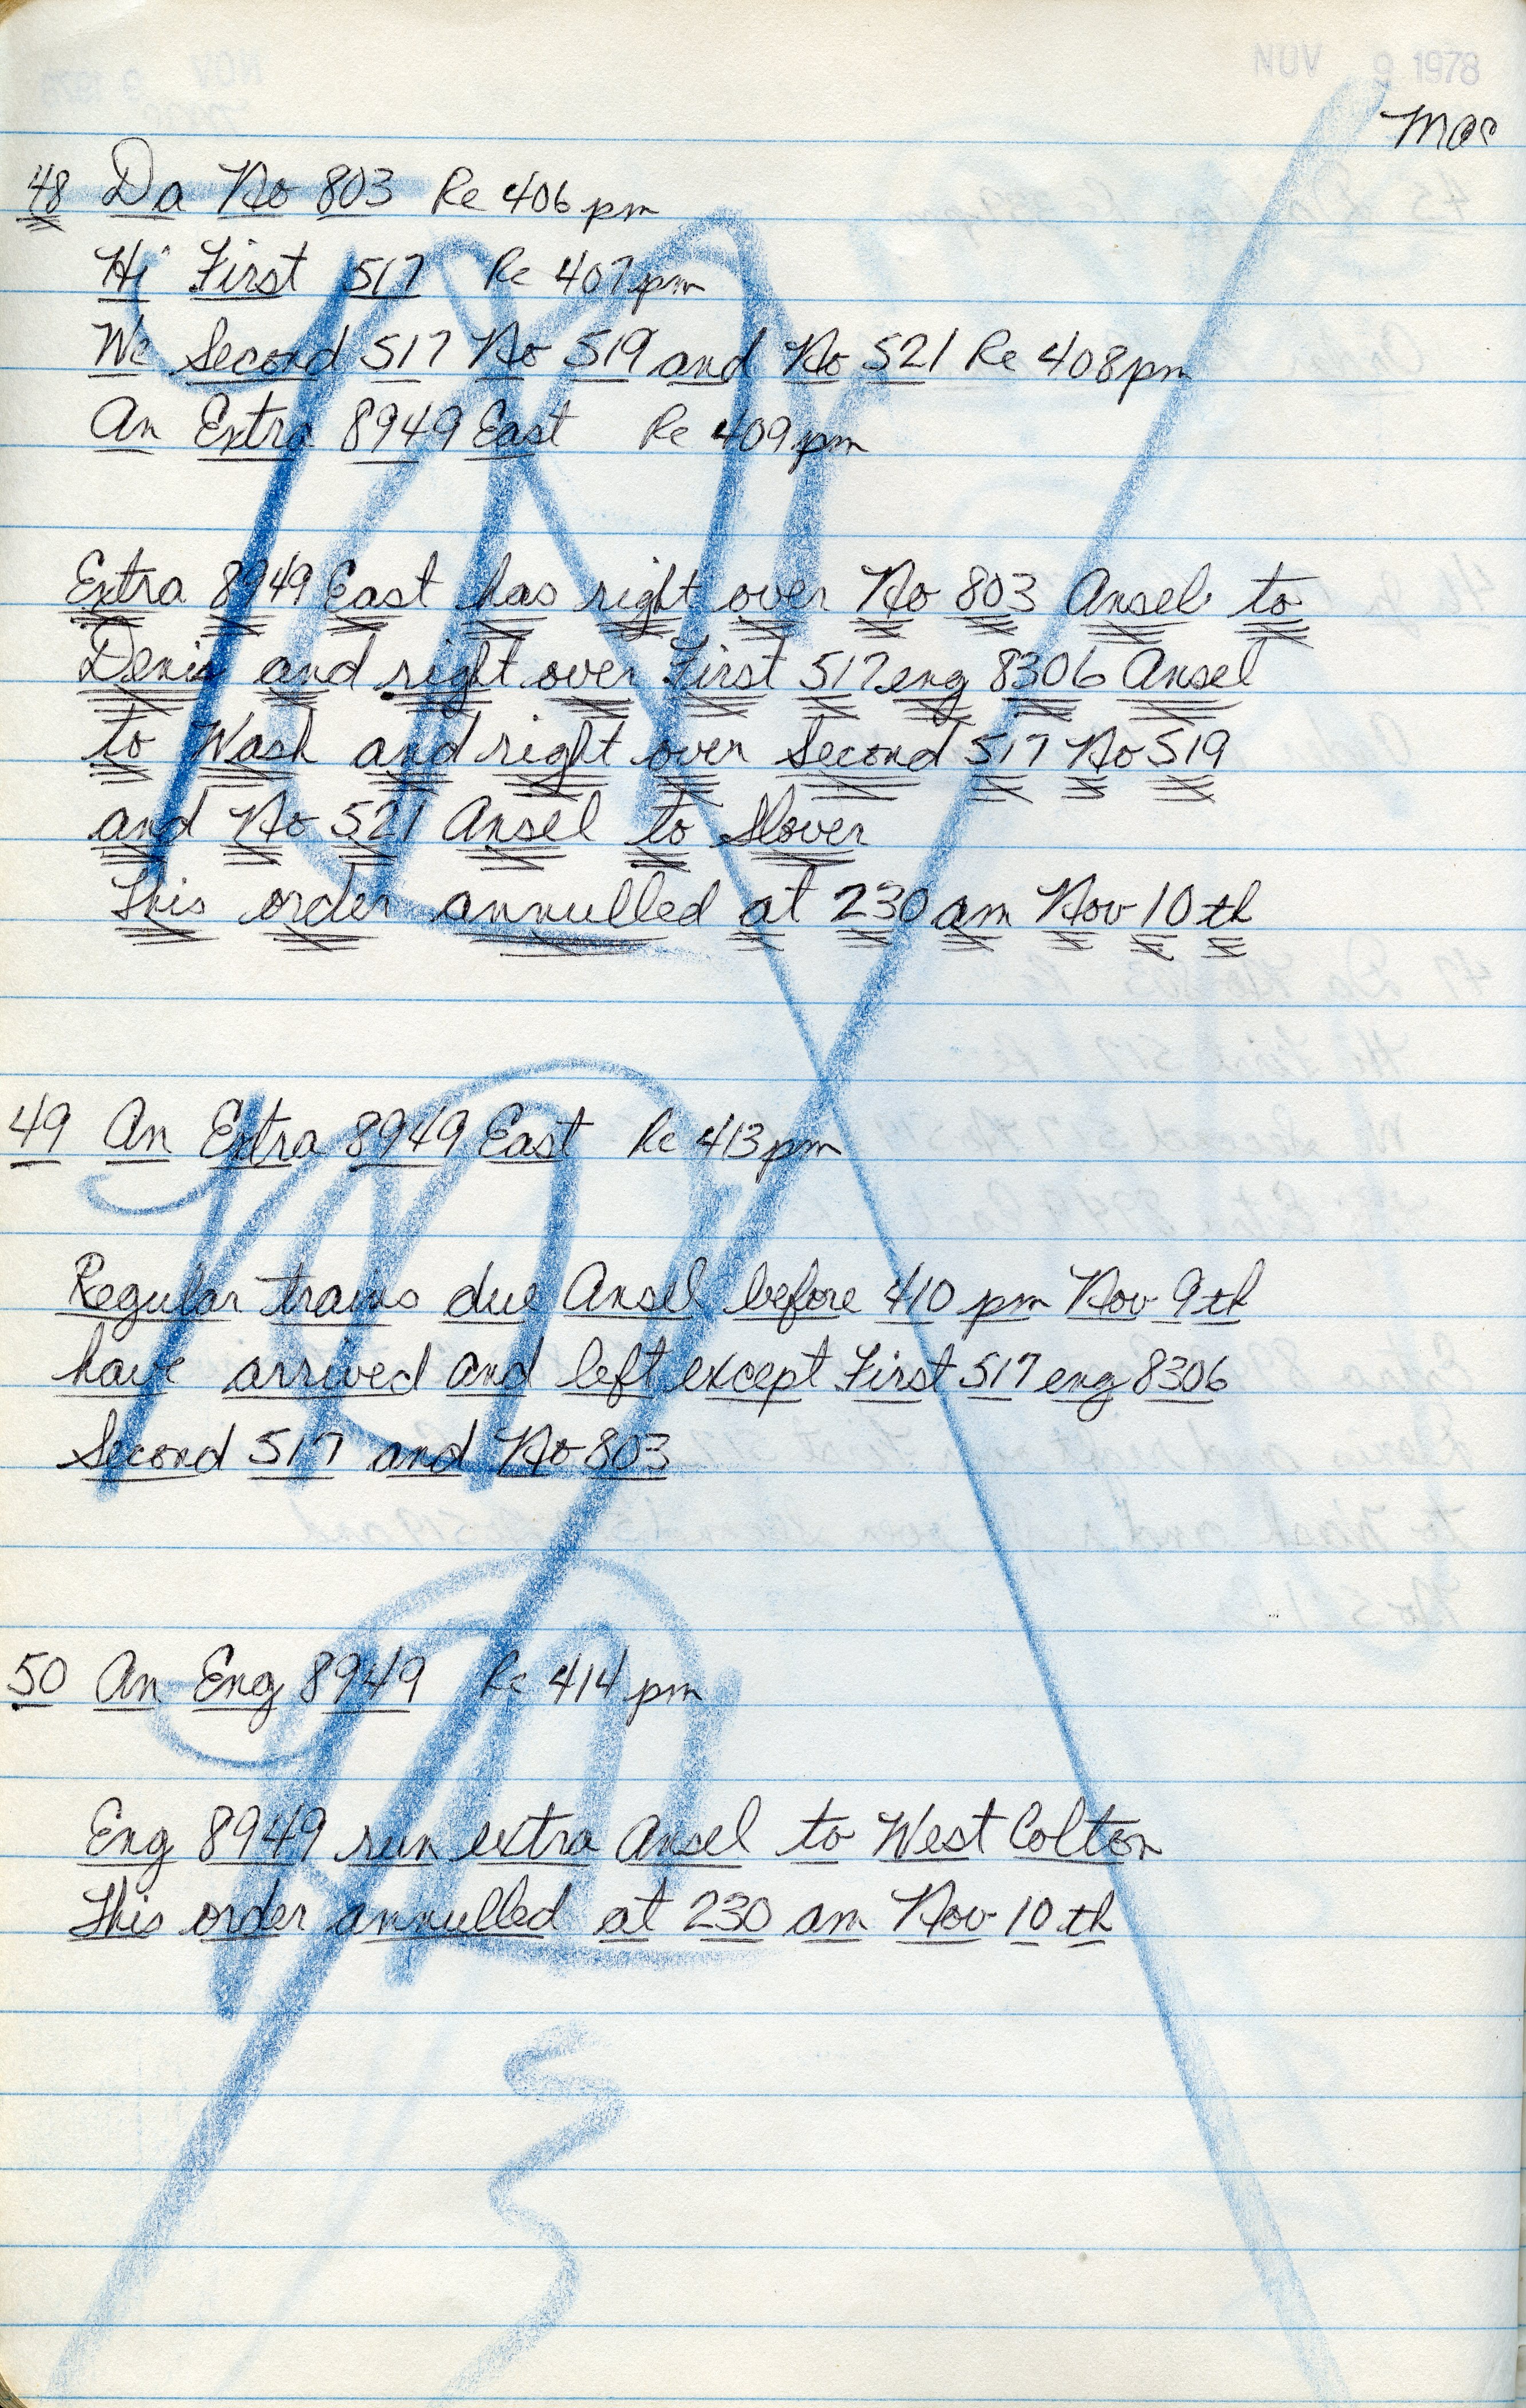 NOV 9 1978
48 Da No 803 Re 406 pm
Hi First 517 Re 407 pm
We Second 517 No 519 and No 521 Re 408 pm
An Extra 8949 East Re 409 pm
Extra 8949 East has right over No 803 Ansel to
Denis and right over First 517 eng 8306 Ansel
to Wash and right over Second 517 No 519
and No 521 Ansel to Slover
This order annulled at 230 am Nov 10 th
49 An Extra 8949 East Re 413 pm
Regular trains due Ansel before 410 pm Nov 9 th
have arrived and left except First 517 eng 8306
Second 517 and No 803
50 An Eng 8949 Re 414 pm
Eng 8949 run extra Ansel to West Colton
This order annulled at 230 am Nov 10 th